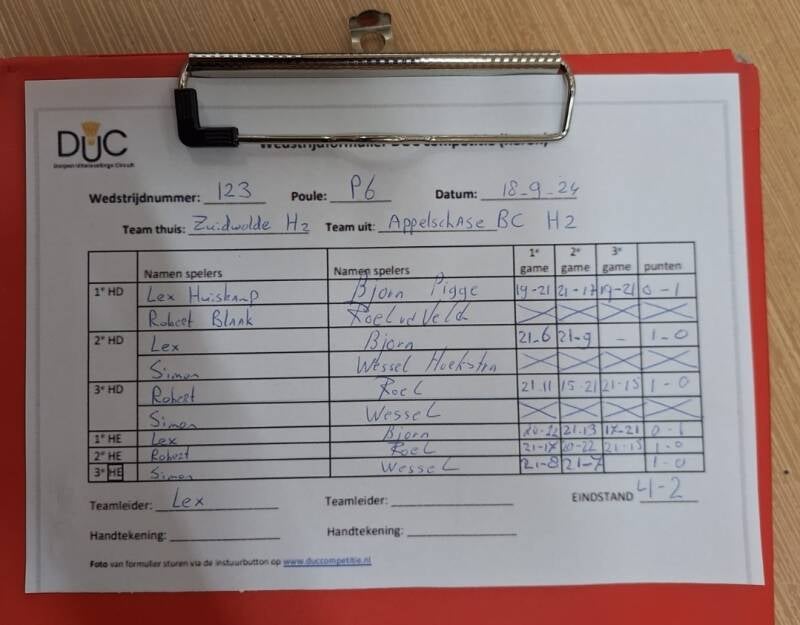 DUC
Wedstrijdnummer: 123 Poule: P6 Datum: 18-9-24
Team thuis: Zuidwolde H2 Team uit: Appelschase BC H2
Namen spelers Namen spelers 1e game 2e game 3e game punten
1e HD Lex Huiskamp Bjorn Pigge 19-21 21-17 19-21 0-1
Robert Blank Roel vd Veld
2e HD Lex Bjorn 21-6 21-9 - 1-0
Simon Wessel Hoekstra
3e HD Robert Roel 21-11 15-21 21-15 1-0
Simon Wessel
1e HE Lex Bjorn 20-22 21-13 17-21 0-1
2e HE Robert Roel 21-17 20-22 21-15 1-0
3e HE Simon Wessel 21-8 21-7 1-0
Teamleider: Lex Teamleider: EINDSTAND 4-2
Handtekening: Handtekening:
Foto van formulier sturen via de instuurbutton op www.duccompetitie.nl